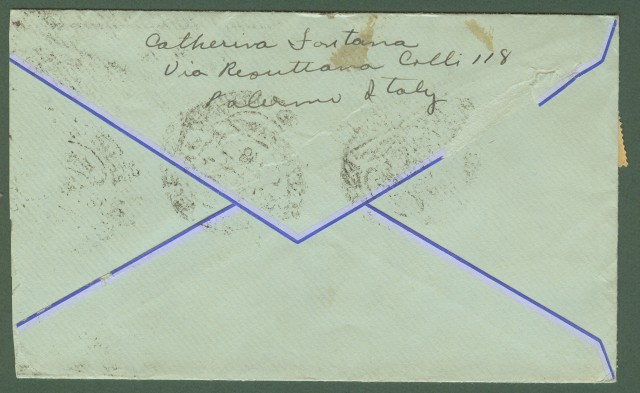 Catherina Fontana
Via Resuttana Colli 118
Palermo Italy